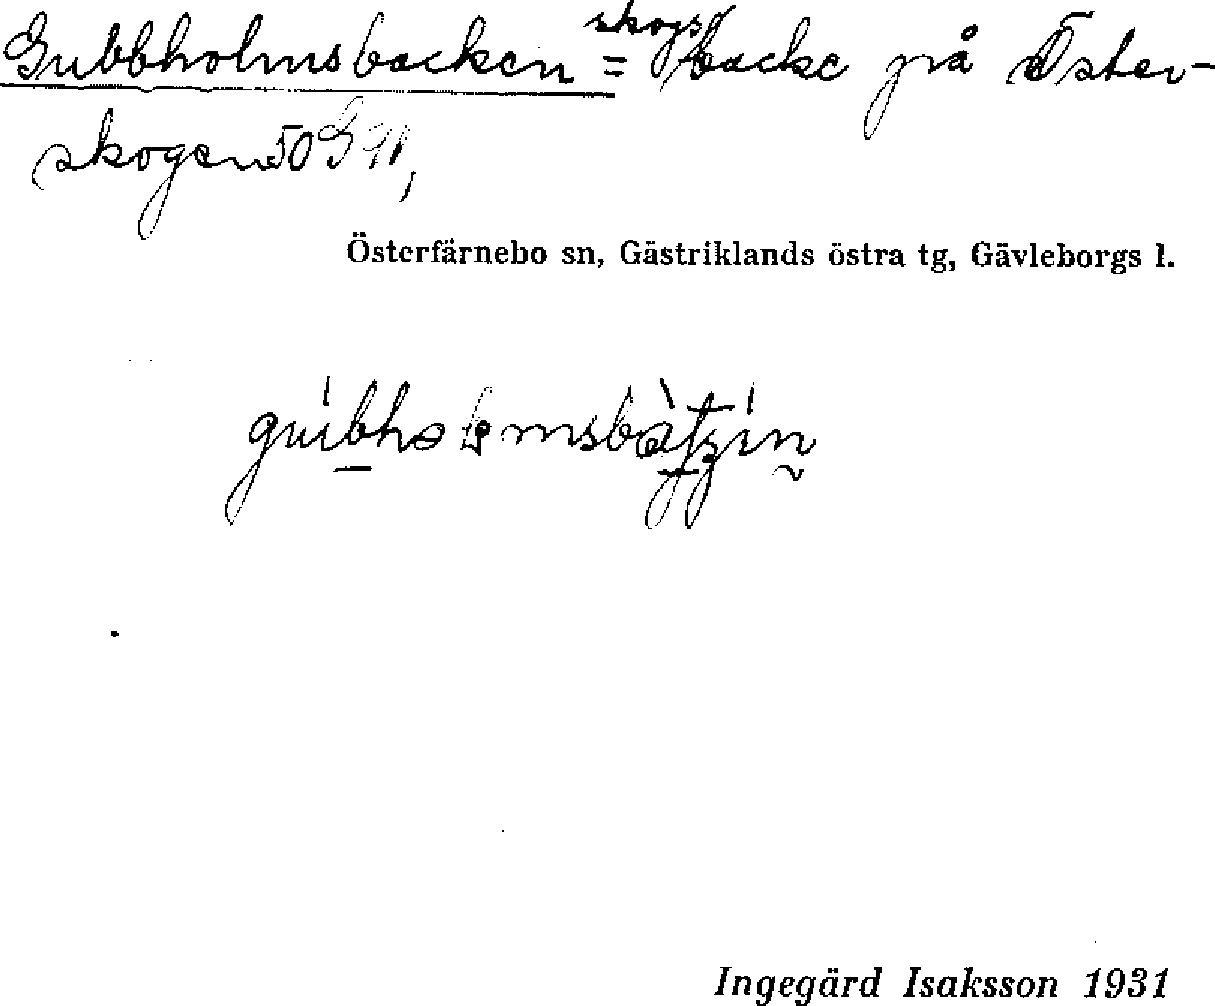 Gubbholmsbacken = skogsbacke på Öster-
skogen 50
Österfärnebo sn, Gästriklands östra tg, Gävleborgs l.
Ingegärd Isaksson 1931